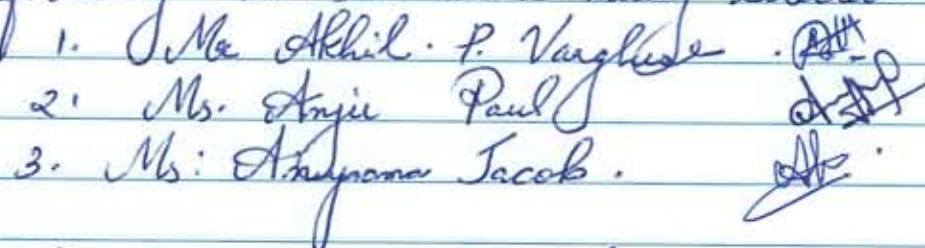 1. Mr Akhil. P. Varghese.
2. Ms. Anju Paul
3. Ms: Anupama Jacob.